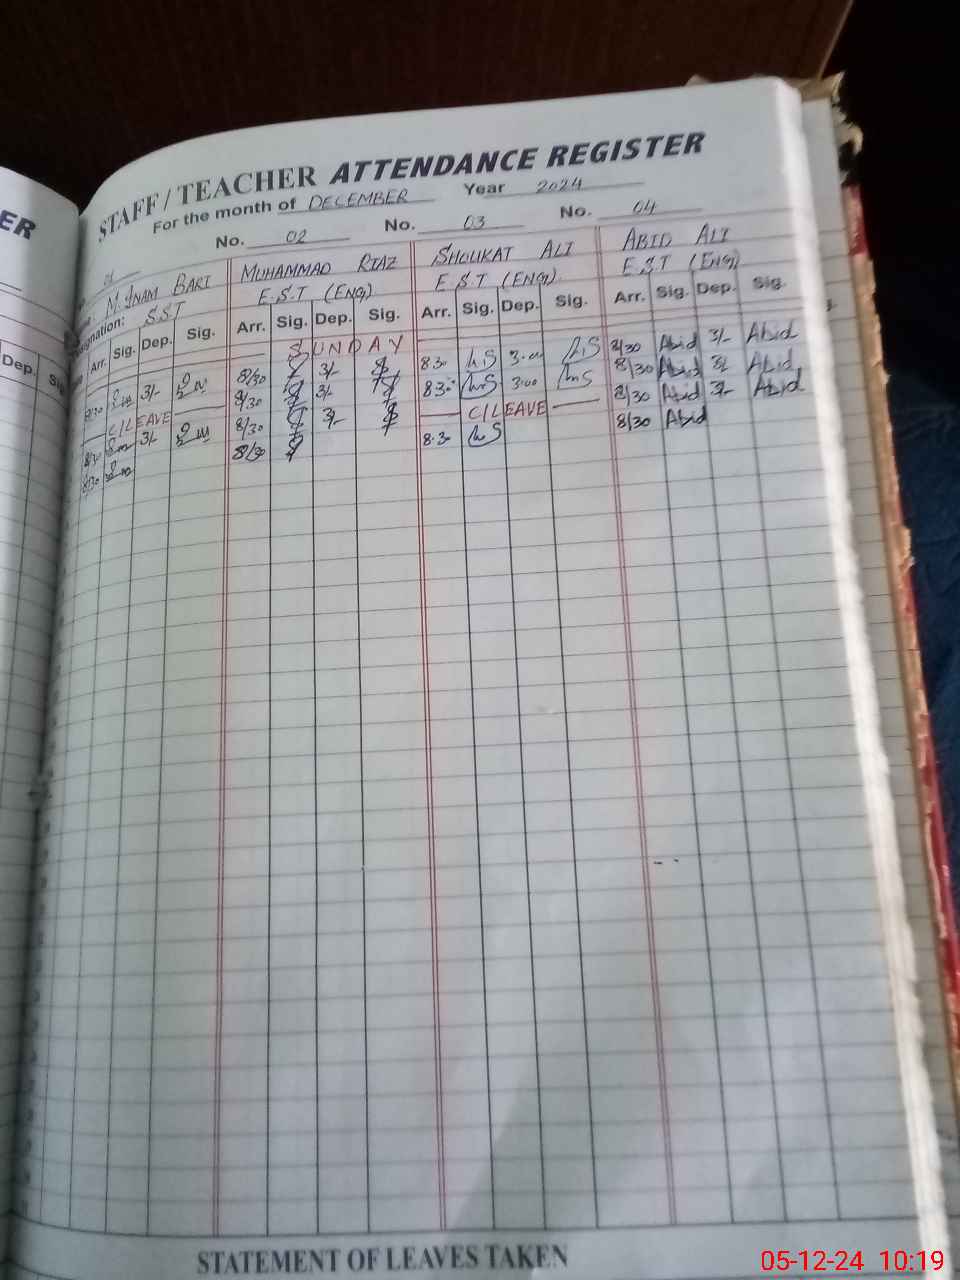 ER
STAFF / TEACHER ATTENDANCE REGISTER
For the month of DECEMBER Year 2024
01 No. 02 No. 03 No. 04
M. INAM BARI MUHAMMAD RIAZ SHOUKAT ALI ABID ALI
SST E.S.T (ENG) E.S.T (ENG) E.S.T (ENG)
Dep. Arr. Sig. Dep. Sig. Arr. Sig. Dep. Sig. Arr. Sig. Dep. Sig. Arr. Sig. Dep. Sig.
SUNDAY
8/30 3/- 8/30 3/- 8:30 3:00 8/30 Abid 3/- Abid
C/LEAVE 8/30 3/- 8:30 3:00 8/30 Abid 3/- Abid
8/30 3/- 8/30 3/- C/LEAVE 8/30 Abid 3/- Abid
8/30 8/30 8:30 8/30 Abid
STATEMENT OF LEAVES TAKEN
05-12-24 10:19